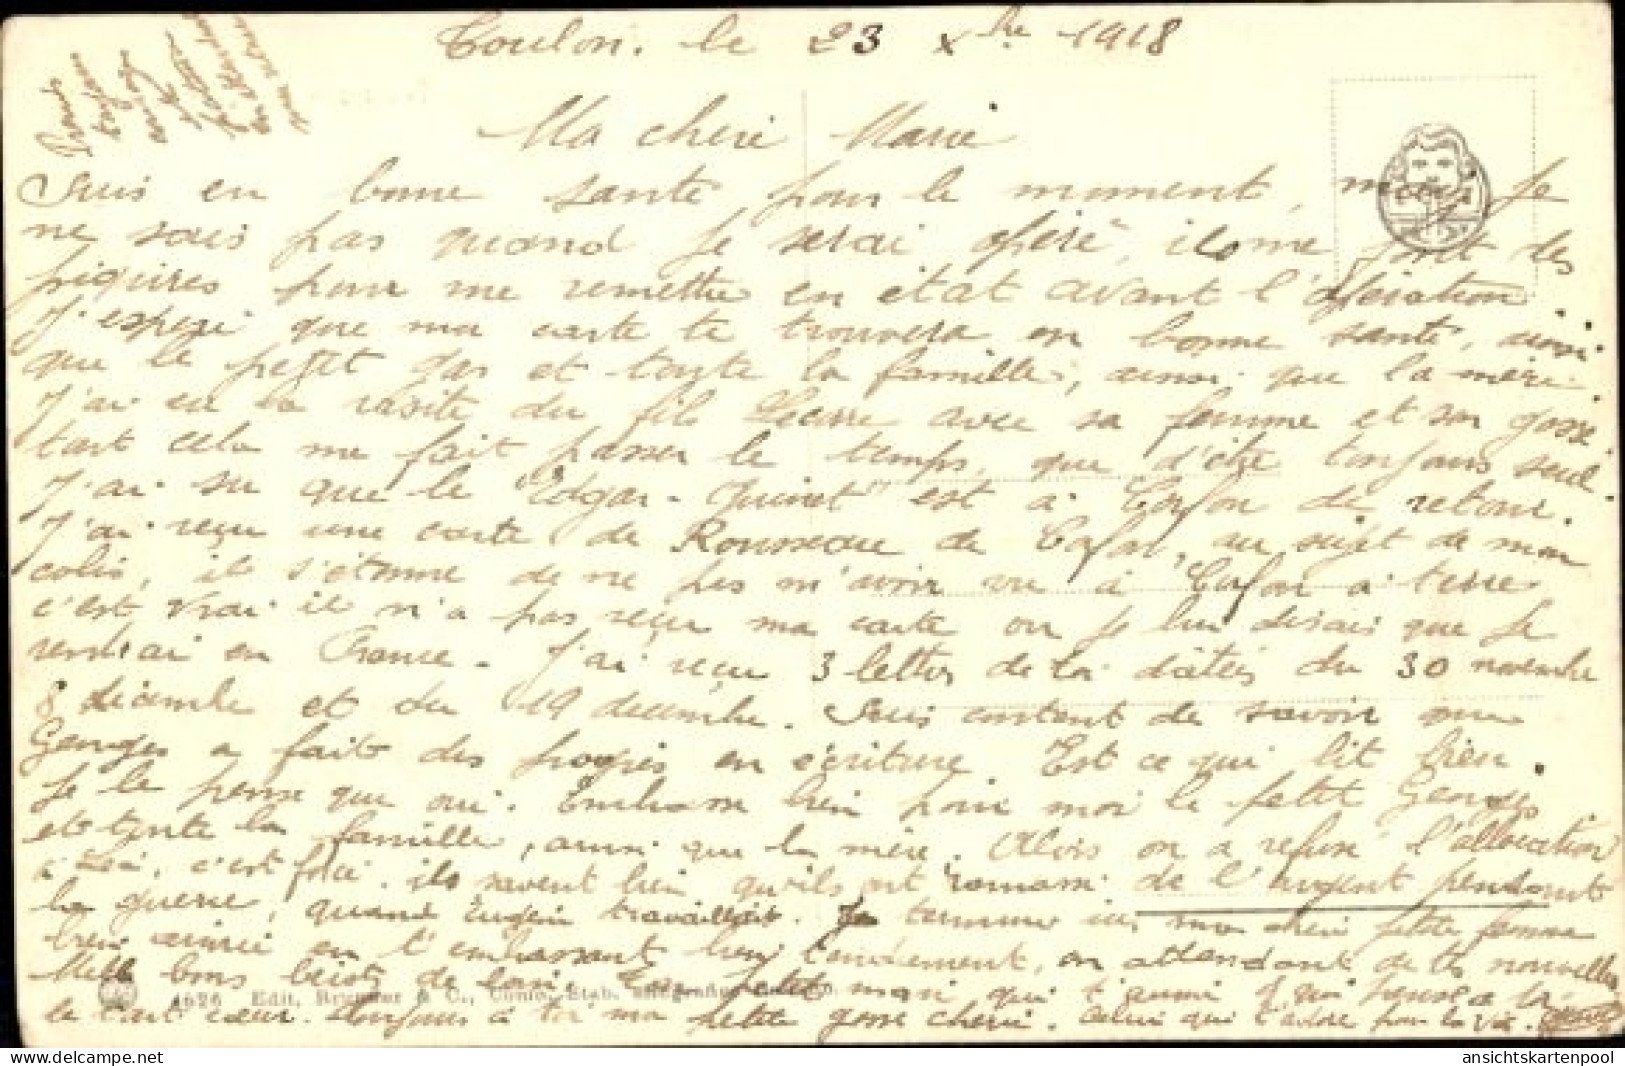 Toulon. le 23 Xbre 1918
Ma cherie Marie
Suis en bonne sante pour le moment, mais je
ne sais pas quand je serai opéré, ils me font des
piquires pour me remettre en etat avant l'opération.
J'espere que ma carte te trouvera en bonne santé, ainsi
que le petit gas et toute la famille, ainsi que la mère.
J'ai eu la visite du fils Pierre avec sa femme et son gosse
tout cela me fait passer le temps, que d'être toujours seul.
J'ai su que le "Edgar-Quinet" est à Corfou de retour.
J'ai reçu une carte de Rousseau de Cafar, au sujet de mon
colis, il s'étonne de ne pas m'avoir vu à Corfou a terre
c'est vrai il n'a pas reçu ma carte ou je lui disais que je
rentrai en France. J'ai reçu 3 lettres de toi datées du 30 novembre
8 décembre et du 19 decembre. Suis content de savoir que
Georges a fait des progrès en écriture. Est ce qui lit bien.
Je le pense que oui. Embrasse bien pour moi le petit Georges
et toute la famille, ainsi que la mère. Alors on a refusé l'allocation
à c'est forcé. ils savent bien qu'ils ont ramassé de l'argent pendant
la guerre, quand Eugène travaillait. Je termine ici ma cherie petite femme
bien aimée en t'embrassant bien tendrement, en attendant de tes nouvelles
Mille bons de loin. Ton petit mari qui t'aime qui pense a toi
le tout cœur. Toujours à toi ma petite gosse cherie. Celui qui t'adore pour la vie.
4626 Edit. Brunner & C., Como. Stab.
ansichtskartenpool